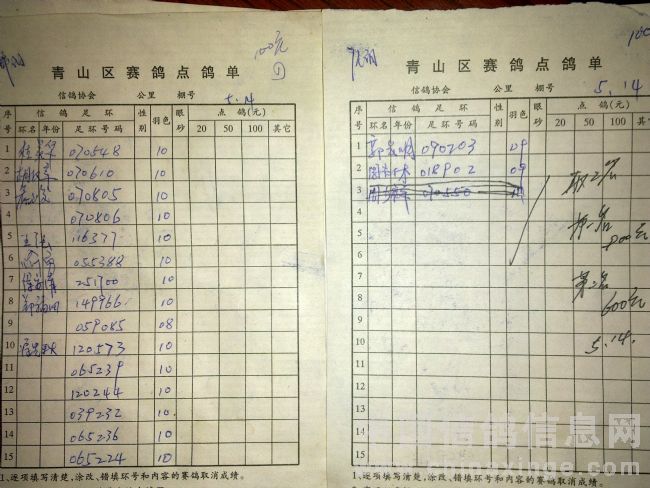 100元
①
青山区赛鸽点鸽单
信鸽协会 公里 棚号 5.14
序号 信鸽足环 性别 羽色 眼砂 点鸽(元)
环名 年份 足环号码 20 50 100 其它
1 070548 10
2 070610 10
3 070805 10
4 070806 10
5 116377 10
6 055388 10
7 251700 10
8 149966 10
9 059085 08
10 120573 10
11 065239 10
12 120244 10
13 039232 10
14 065236 10
15 065224 10
1、逐项填写清楚,涂改、错填环号和内容的赛鸽取消成绩。
100
青山区赛鸽点鸽单
信鸽协会 公里 棚号 5.14
序号 信鸽足环 性别 羽色 眼砂 点鸽(元)
环名 年份 足环号码 20 50 100 其它
1 090203 09
2 018902 09
3 070550 10
4
5
6
7
8
9
10
11
12
13
14
15
取2名
第一名
800元
第2名
600元
5.14.
1、逐项填写清楚,涂改、错填环号和内容的赛鸽取消成绩。
中国信鸽信息网